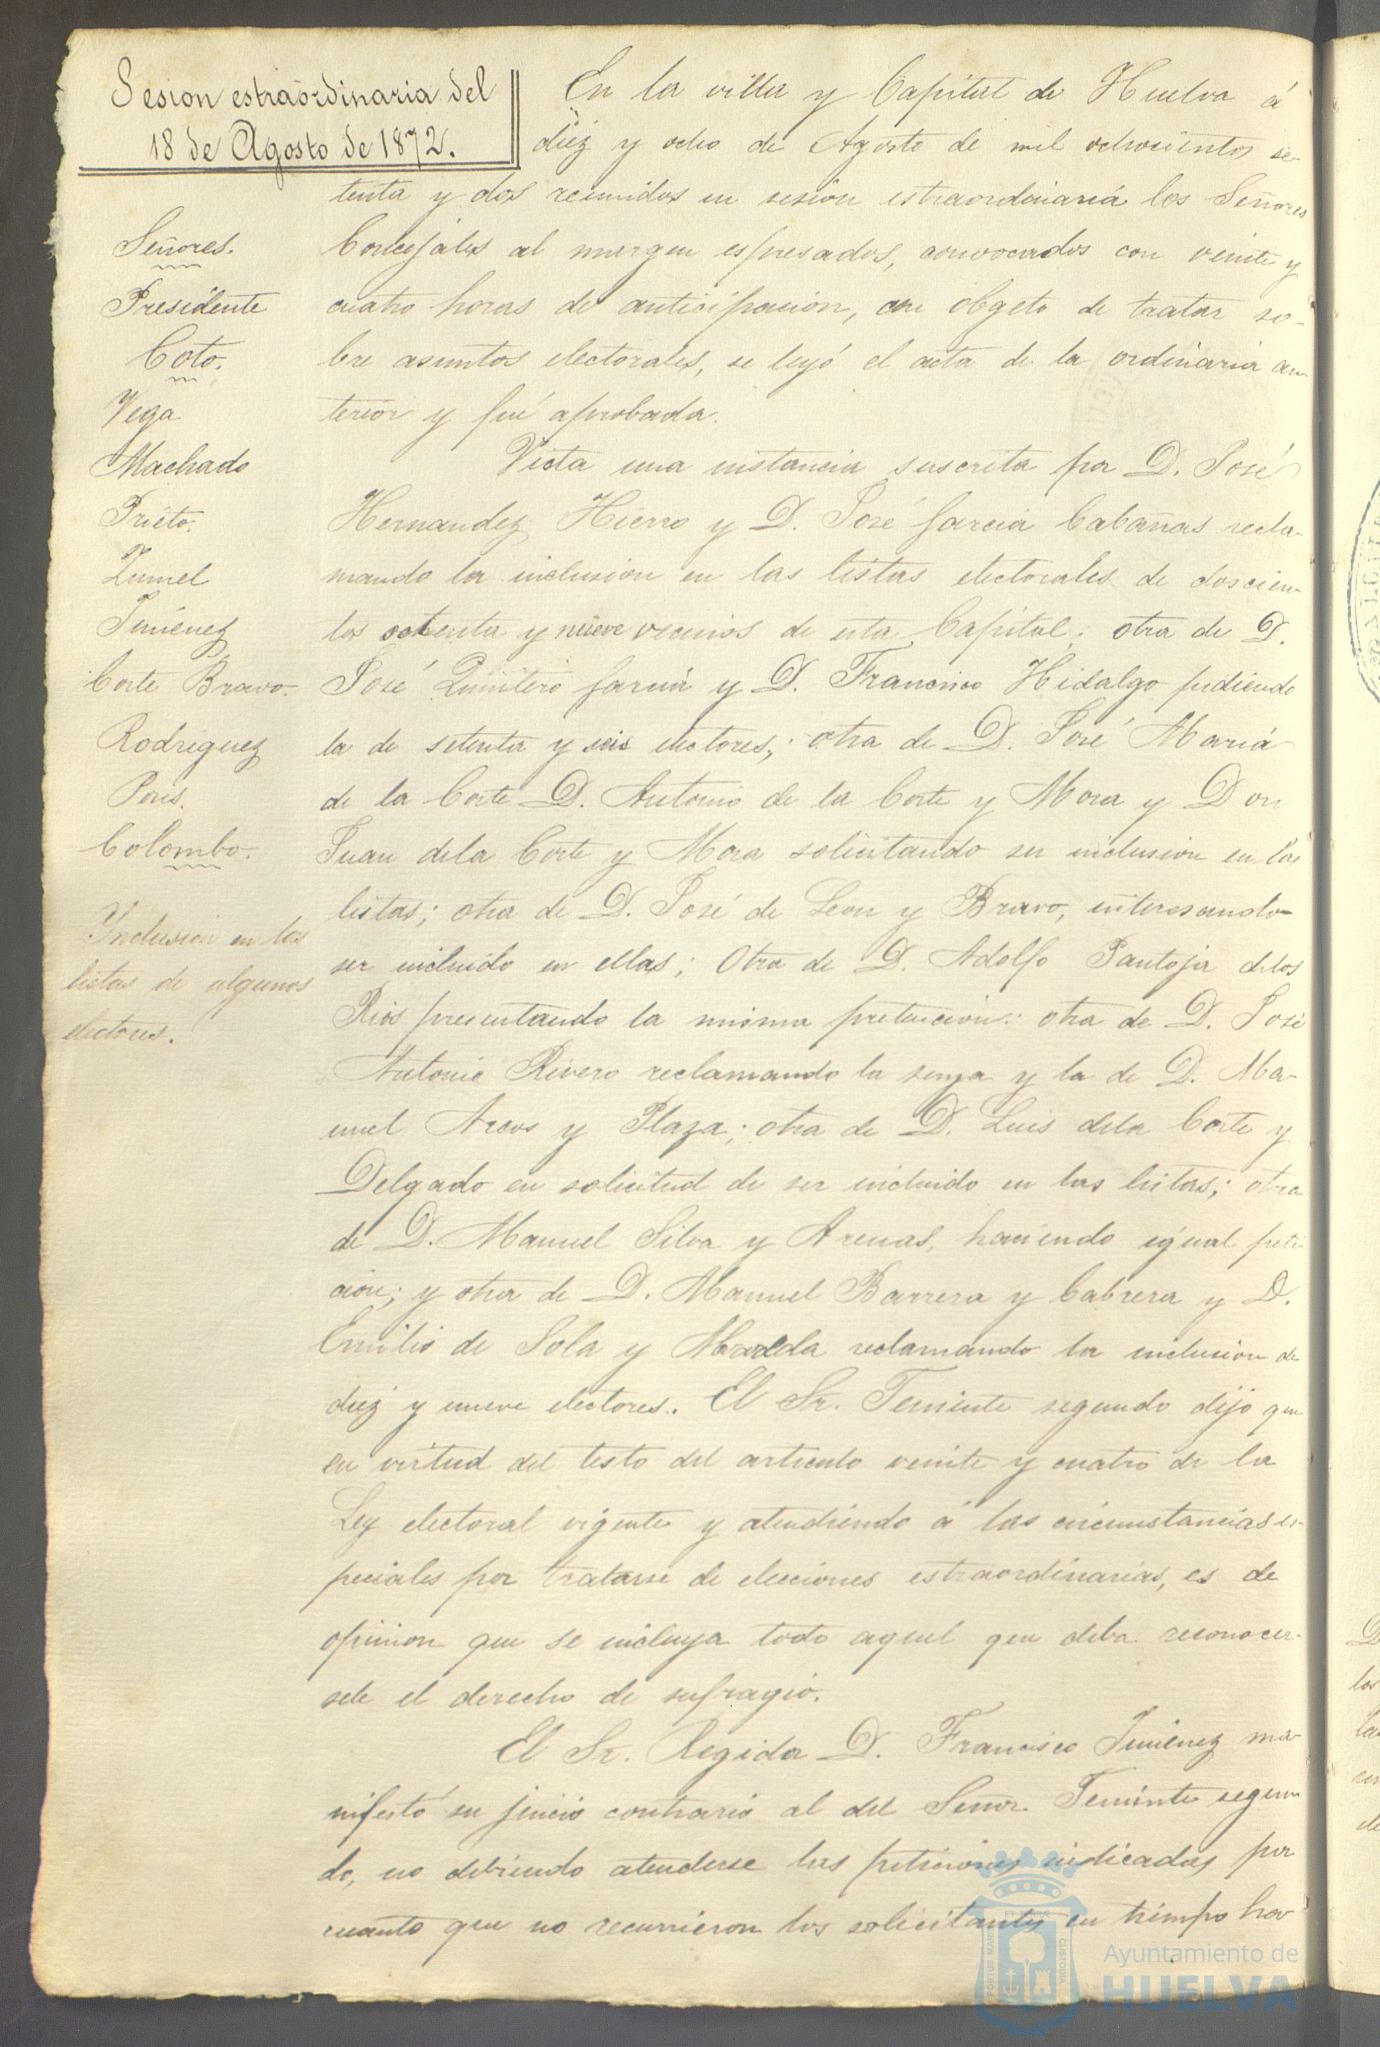 Sesion estraordinaria del
18 de Agosto de 1872.
Señores.
Presidente
Coto.
Vega
Machado
Prieto.
Zumel
Jiménez
Corte Bravo.
Rodriguez
Peris.
Colombo.
Inclusion en las
listas de algunos
electores.
En la villa y Capital de Huelva á
diez y ocho de Agosto de mil ochocientos se-
tenta y dos reunidos en sesión estraordinaria los Señores
Concejales al margen espresados, convocados con veinte y
cuatro horas de anticipación, con obgeto de tratar so-
bre asuntos electorales, se leyó el acta de la ordinaria an-
terior y fué aprobada.
Vista una instancia suscrita por D. José
Hernandez Hierro y D. José Garcia Cabañas recla-
mando la inclusion en las listas electorales de doscien-
tos setenta y nueve vecinos de esta Capital; otra de D.
José Quintero Garcia y D. Francisco Hidalgo pidiendo
la de setenta y seis electores; otra de D. José Maria
de la Corte D. Antonio de la Corte y Mora y Don
Juan dela Corte y Mora solicitando su inclusion en las
listas; otra de D. José de Leon y Bravo, interesando
ser incluido en ellas; Otra de D. Adolfo Pantoja delos
Rios presentando la misma pretencion: otra de D. José
Antonio Rivero reclamando la suya y la de D. Ma-
nuel Arcos y Plaza; otra de D. Luis dela Corte y
Delgado en solicitud de ser incluido en las listas; otra
de D. Manuel Silva y Arenas, haciendo igual peti-
cion; y otra de D. Manuel Barrera y Cabrera y D.
Emilio de Sola y reclamando la inclusion de
diez y nueve electores. El Sr. Teniente segundo dijo que
en virtud del testo del articulo veinte y cuatro de la
Ley electoral vigente y atendiendo á las circunstancias es-
peciales por tratarse de elecciones estraordinarias, es de
opinion que se incluya todo aquel que deba reconocer-
sele el derecho de sufragio.
El Sr. Regidor D. Francisco Jimenez ma-
nifestó su juicio contrario al del Señor Teniente segun-
do, no debiendo atenderse las peticiones indicadas por
cuanto que no recurrieron los solicitantes en tiempo há-
Ayuntamiento de
HUELVA